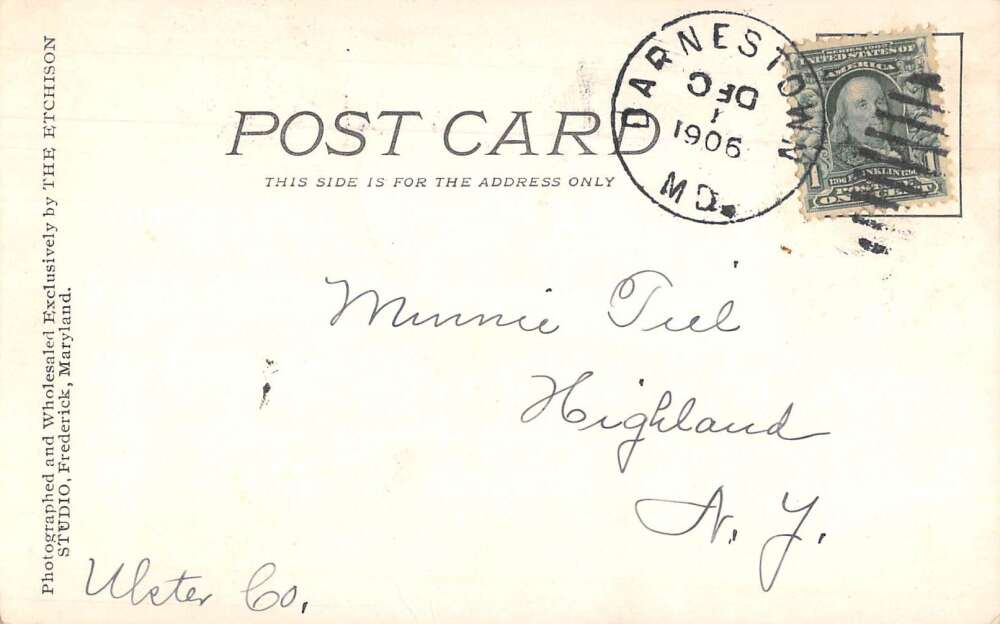 POST CARD
THIS SIDE IS FOR THE ADDRESS ONLY
DARNESTOWN
DEC
1
1906
MD.
SERIES 1902
UNITED STATES OF
AMERICA
1 1706 FRANKLIN 1790 1
POSTAGE
ONE CENT
Photographed and Wholesaled Exclusively by THE ETCHISON
STUDIO, Frederick, Maryland.
Minnie Tiel
Highland
N. Y.
Ulster Co.